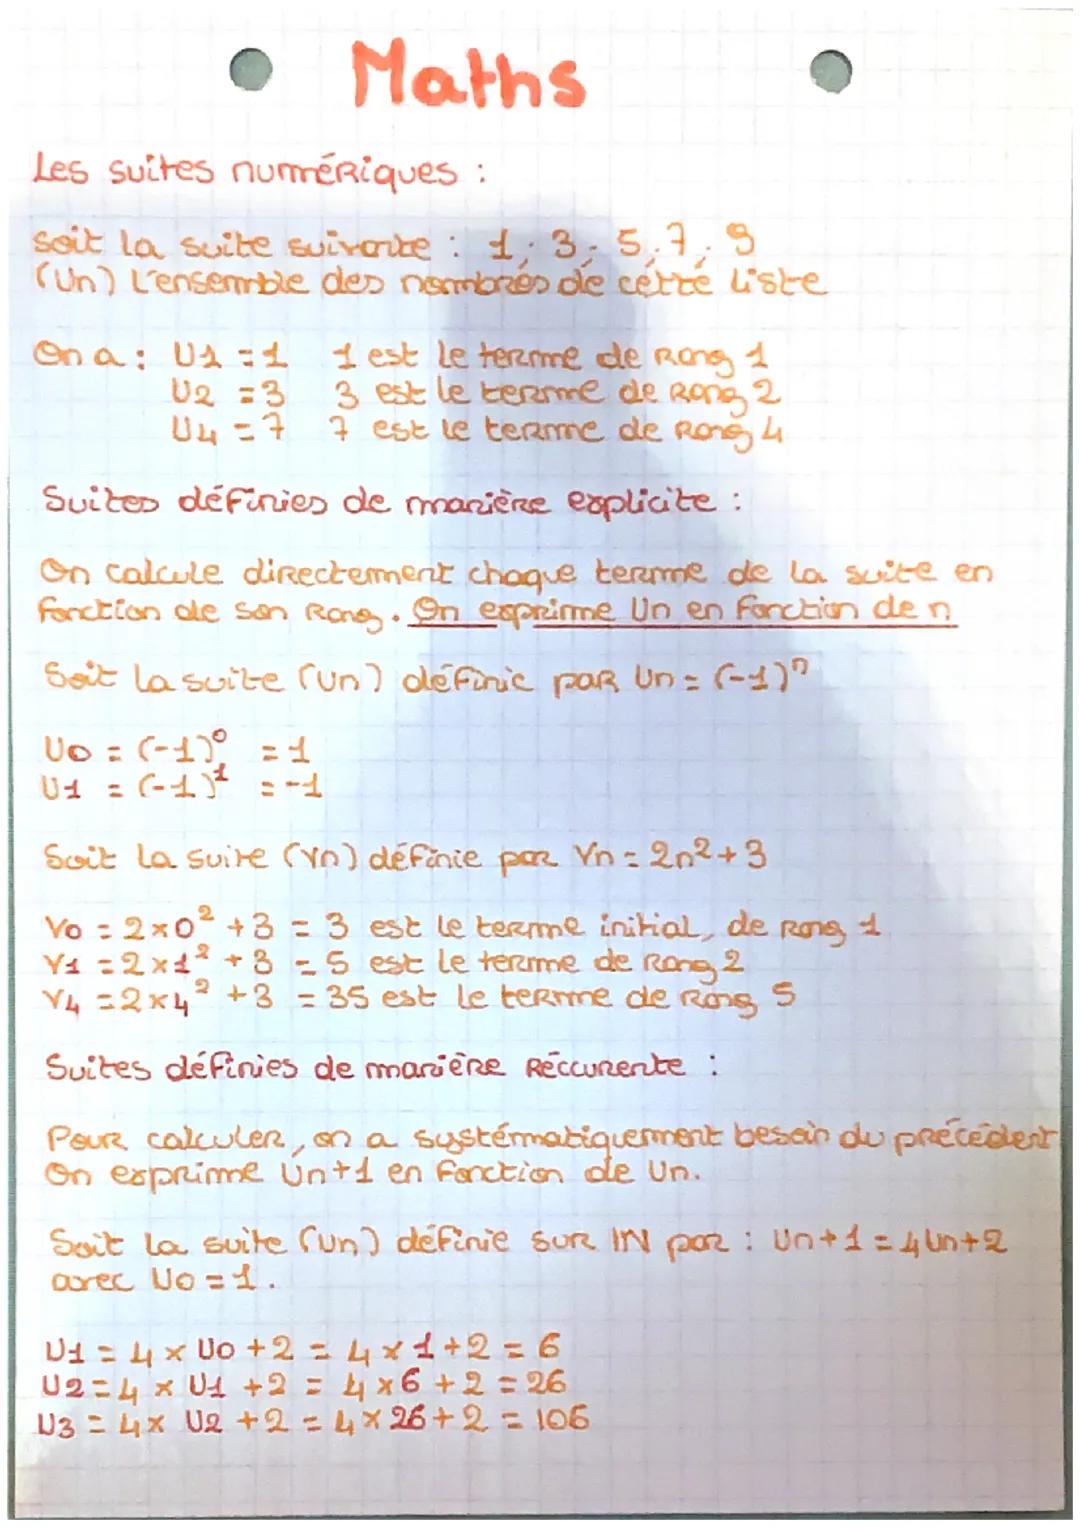 Maths
Les suites numériques :
soit la suite suivante : 1; 3; 5; 7; 9
(Un) l'ensemble des nombres de cette liste
On a : U1 = 1 1 est le terme de Rang 1
U2 = 3 3 est le terme de Rang 2
U4 = 7 7 est le terme de Rang 4
Suites définies de manière explicite :
On calcule directement chaque terme de la suite en
fonction de son Rang. On exprime Un en fonction de n
Soit la suite (Un) définie par Un = (-1)ⁿ
U0 = (-1)⁰ = 1
U1 = (-1)¹ = -1
Soit la suite (Vn) définie par Vn = 2n² + 3
V0 = 2×0² + 3 = 3 est le terme initial, de rang 1
V1 = 2×1² + 3 = 5 est le terme de Rang 2
V4 = 2×4² + 3 = 35 est le terme de Rang 5
Suites définies de manière Réccurente :
Pour calculer, on a systématiquement besoin du précédent
On exprime Un+1 en fonction de Un.
Soit la suite (Un) définie sur IN par : Un+1 = 4Un+2
avec U0 = 1.
U1 = 4 × U0 + 2 = 4 × 1 + 2 = 6
U2 = 4 × U1 + 2 = 4 × 6 + 2 = 26
U3 = 4 × U2 + 2 = 4 × 26 + 2 = 106